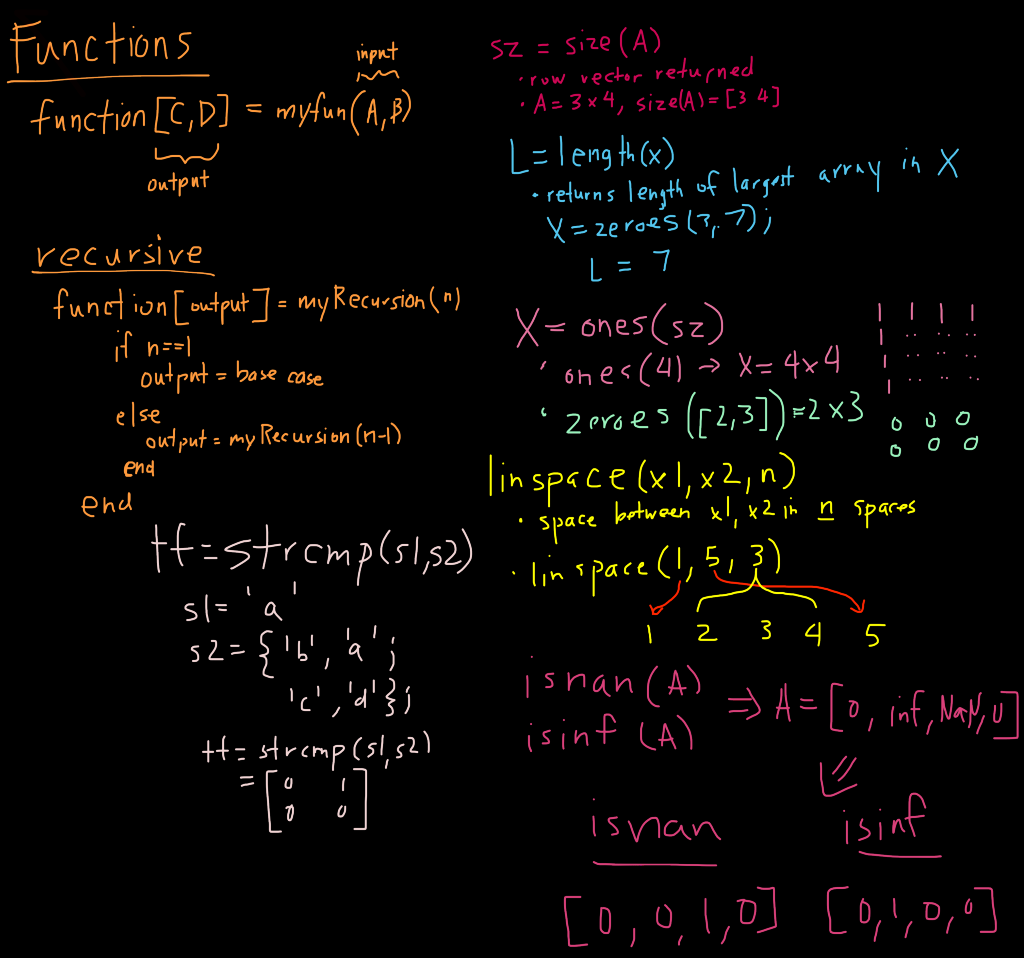 Functions
input
function [C,D] = myfun(A,B)
output
recursive
function [output] = myRecursion(n)
if n==1
output = base case
else
output = myRecursion(n-1)
end
end
tf = strcmp(s1,s2)
s1 = 'a'
s2 = {'b', 'a';
'c', 'd'};
tf = strcmp(s1,s2)
= [0 1
0 0]
sz = size(A)
· row vector returned
· A = 3x4, size(A) = [3 4]
L = length(x)
· returns length of largest array in X
X = zeroes(3,7);
L = 7
X = ones(sz)
· ones(4) → X = 4x4
1 1 1 1
1 .. .. ..
1 .. .. ..
1 .. .. ..
· zeroes([2,3]) = 2x3
0 0 0
0 0 0
linspace(x1,x2,n)
· space between x1, x2 in n spaces
· linspace(1, 5, 3)
1 2 3 4 5
isnan(A)
isinf(A)
⇒ A = [0, inf, NaN, 0]
isnan isinf
[0, 0, 1, 0] [0, 1, 0, 0]